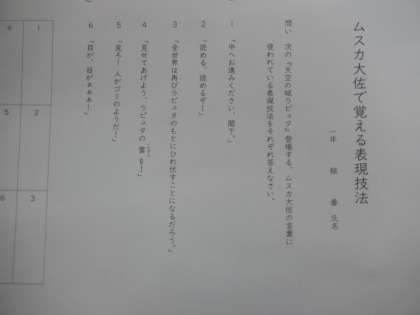 ムスカ大佐で覚える表現技法
一年 組 番 氏名
問い 次の『天空の城ラピュタ』登場する、ムスカ大佐の言葉に
使われている表現技法をそれぞれ答えなさい。
1 「中へお進みください、閣下。」
2 「読める、読めるぞ!」
3 「全世界は再びラピュタのもとにひれ伏すことになるだろう。」
4 「見せてあげよう、ラピュタの雷を!」
5 「見ろ!人がゴミのようだ!」
6 「目が、目がぁぁぁ!」
1
2
3
4
5
6